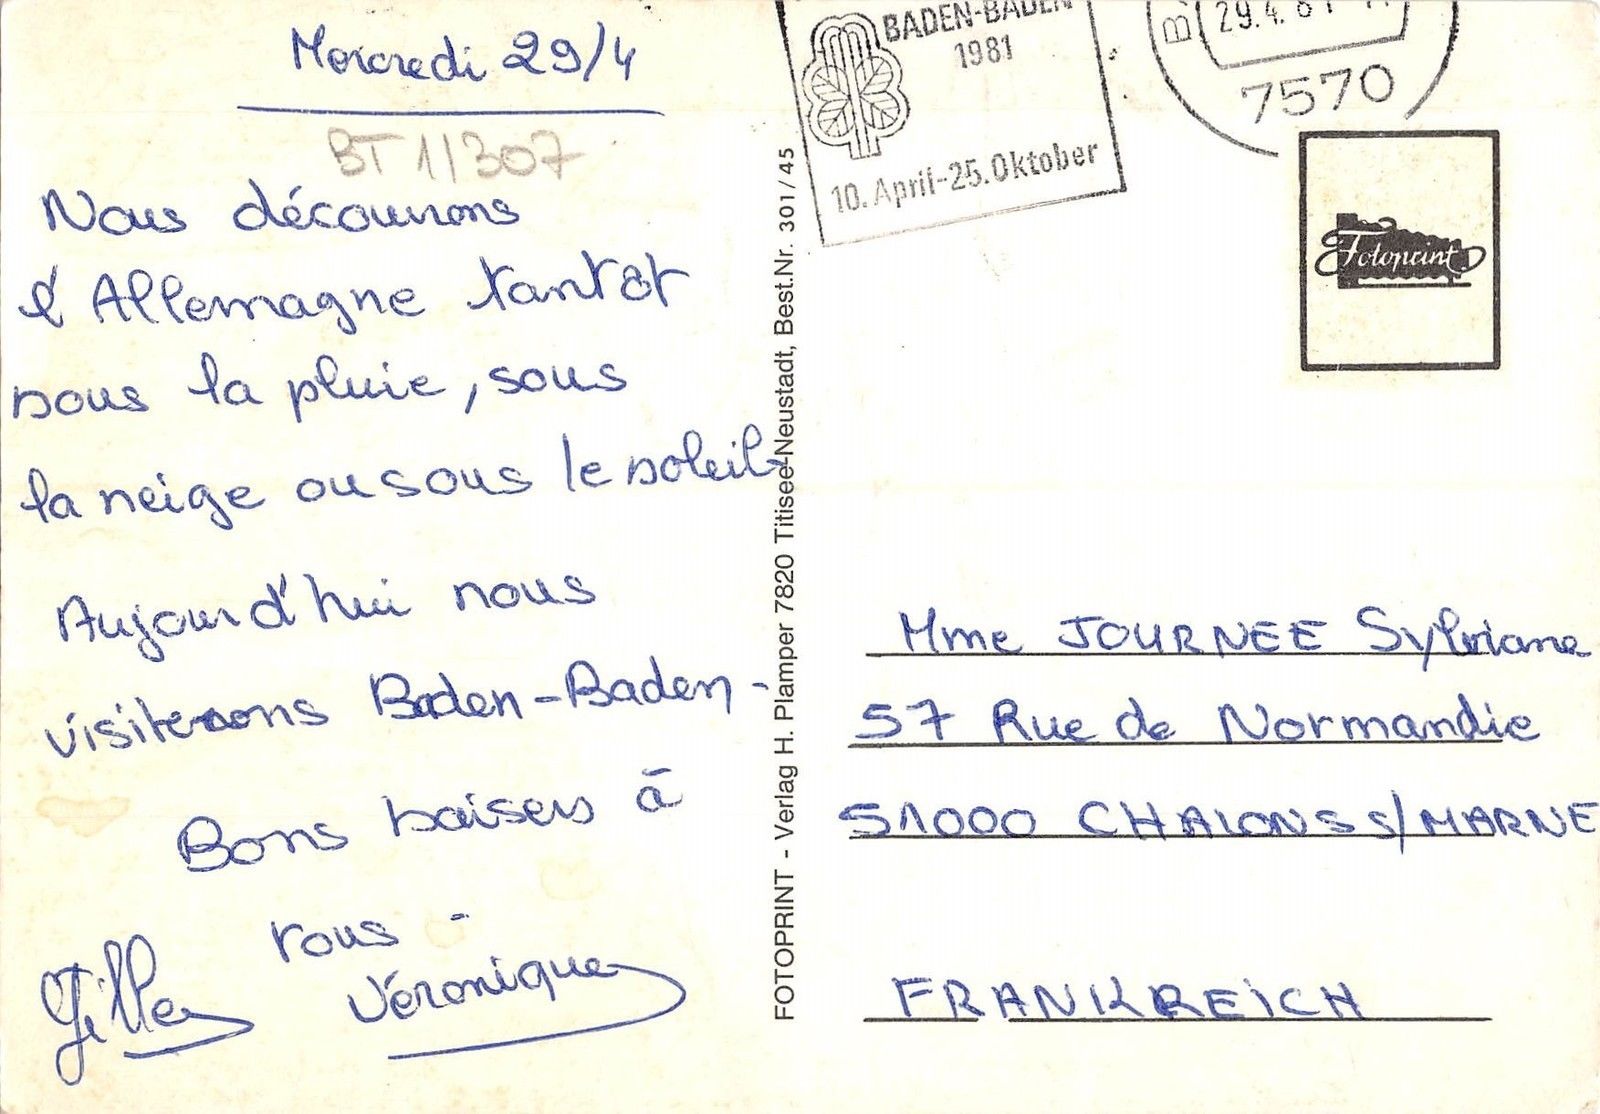 Mercredi 29/4
BT 11307
Nous découvrons
l'Allemagne tantôt
sous la pluie, sous
la neige ou sous le soleil.
Aujourd'hui nous
visiterons Baden-Baden-
Bons baisers à
tous -
Gilles Véronique
FOTOPRINT - Verlag H. Plamper 7820 Titisee-Neustadt, Best.Nr. 301/45
BADEN-BADEN
1981
10. April-25. Oktober
29.4.81
7570
Fotoprint
Mme JOURNEE Sylviane
57 Rue de Normandie
51000 CHALONS S/MARNE
FRANKREICH